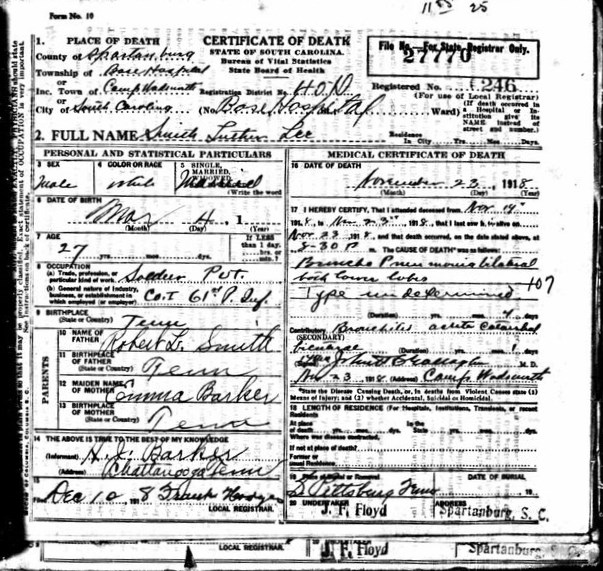 11 25
Form No. 10
1. PLACE OF DEATH
County of Spartanburg
Township of Base Hospital
Inc. Town of Camp Wadsworth
City of South Carolina
CERTIFICATE OF DEATH
STATE OF SOUTH CAROLINA.
Bureau of Vital Statistics
State Board of Health
Registration District No.
(No. Base Hospital Ward)
File No.—For State Registrar Only.
27770
Registered No. 246
(For use of Local Registrar)
(If death occurred in a Hospital or Institution give its NAME instead of street and number.)
2. FULL NAME Smith Lee
Residence
In City Yrs. Mos. Days.
PERSONAL AND STATISTICAL PARTICULARS
3 SEX
Male
4 COLOR OR RACE
White
5 SINGLE, MARRIED, WIDOWED,
(Write the word)
6 DATE OF BIRTH
4, 1
(Month) (Day) (Year)
7 AGE
27 yrs. mos. ds.
If LESS than 1 day,
hrs. or min.?
8 OCCUPATION
(a) Trade, profession, or particular kind of work Soldier Pvt.
(b) General nature of Industry, business, or establishment in which employed (or employer) Co. I 61st P. Inf
9 BIRTHPLACE
(State or Country) Tenn
PARENTS
10 NAME OF FATHER Robert L. Smith
11 BIRTHPLACE OF FATHER
(State or Country) Tenn
12 MAIDEN NAME OF MOTHER Emma Barker
13 BIRTHPLACE OF MOTHER
(State or Country) Tenn
14 THE ABOVE IS TRUE TO THE BEST OF MY KNOWLEDGE
(Informant) Barker
(Address) Chattanooga Tenn
15
Filed Dec 10 191 8 Frank
LOCAL REGISTRAR.
MEDICAL CERTIFICATE OF DEATH
16 DATE OF DEATH
November 23, 1918
(Month) (Day) (Year)
17 I HEREBY CERTIFY, That I attended deceased from Nov 14
1918, to Nov 23rd 1918, that I last saw h alive on
Nov 23 1918, and that death occurred, on the date stated above, at
8-30 P m. The CAUSE OF DEATH was as follows:
Broncho Pneumonia bilateral
both lower lobes 107
Type undetermined
(Duration) yrs. mos. days
Contributory Bronchitis acute Catarrhal
(SECONDARY)
(Duration) yrs. mos. days
(Signed) M. D.
Nov 23 1918 (Address) Camp Wadsworth
*State the Disease Causing Death, or, in deaths from Violent Causes state (1) Means of Injury; and (2) whether Accidental, Suicidal or Homicidal.
18 LENGTH OF RESIDENCE (For Hospitals, Institutions, Transients, or recent Residents)
At place of death yrs. mos. ds. In the State yrs. mos. ds.
Where was disease contracted,
If not at place of death?
Former or usual Residence
19 Place of Burial or Removal
DATE OF BURIAL
S. Pittsburg Tenn 19
20 UNDERTAKER
J. F. Floyd
ADDRESS
Spartanburg, S. C.
LOCAL REGISTRAR.
J. F. Floyd
Spartanburg, S. C.